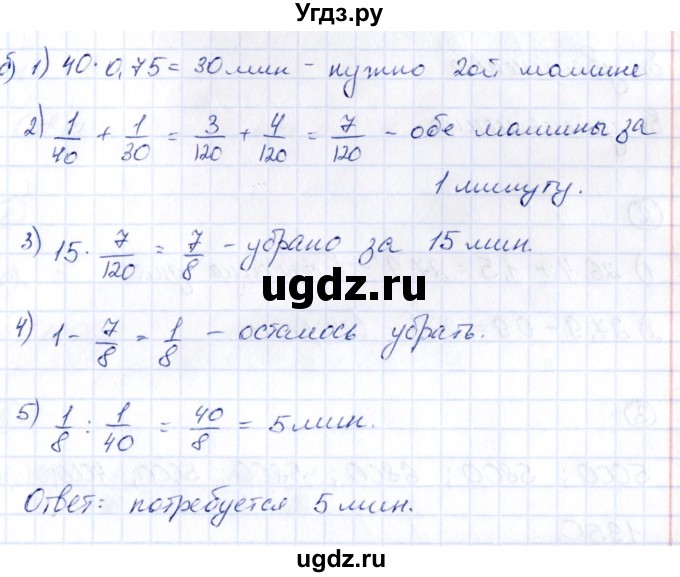 Угдз.ру
б) 1) 40·0,75 = 30 мин - нужно 2ой машине
2) 1/40 + 1/30 = 3/120 + 4/120 = 7/120 - обе машины за
1 минуту.
3) 15 · 7/120 = 7/8 - убрано за 15 мин.
ugdz.ru
4) 1 - 7/8 = 1/8 - осталось убрать.
5) 1/8 : 1/40 = 40/8 = 5 мин.
Ответ: потребуется 5 мин.
ugdz.ru